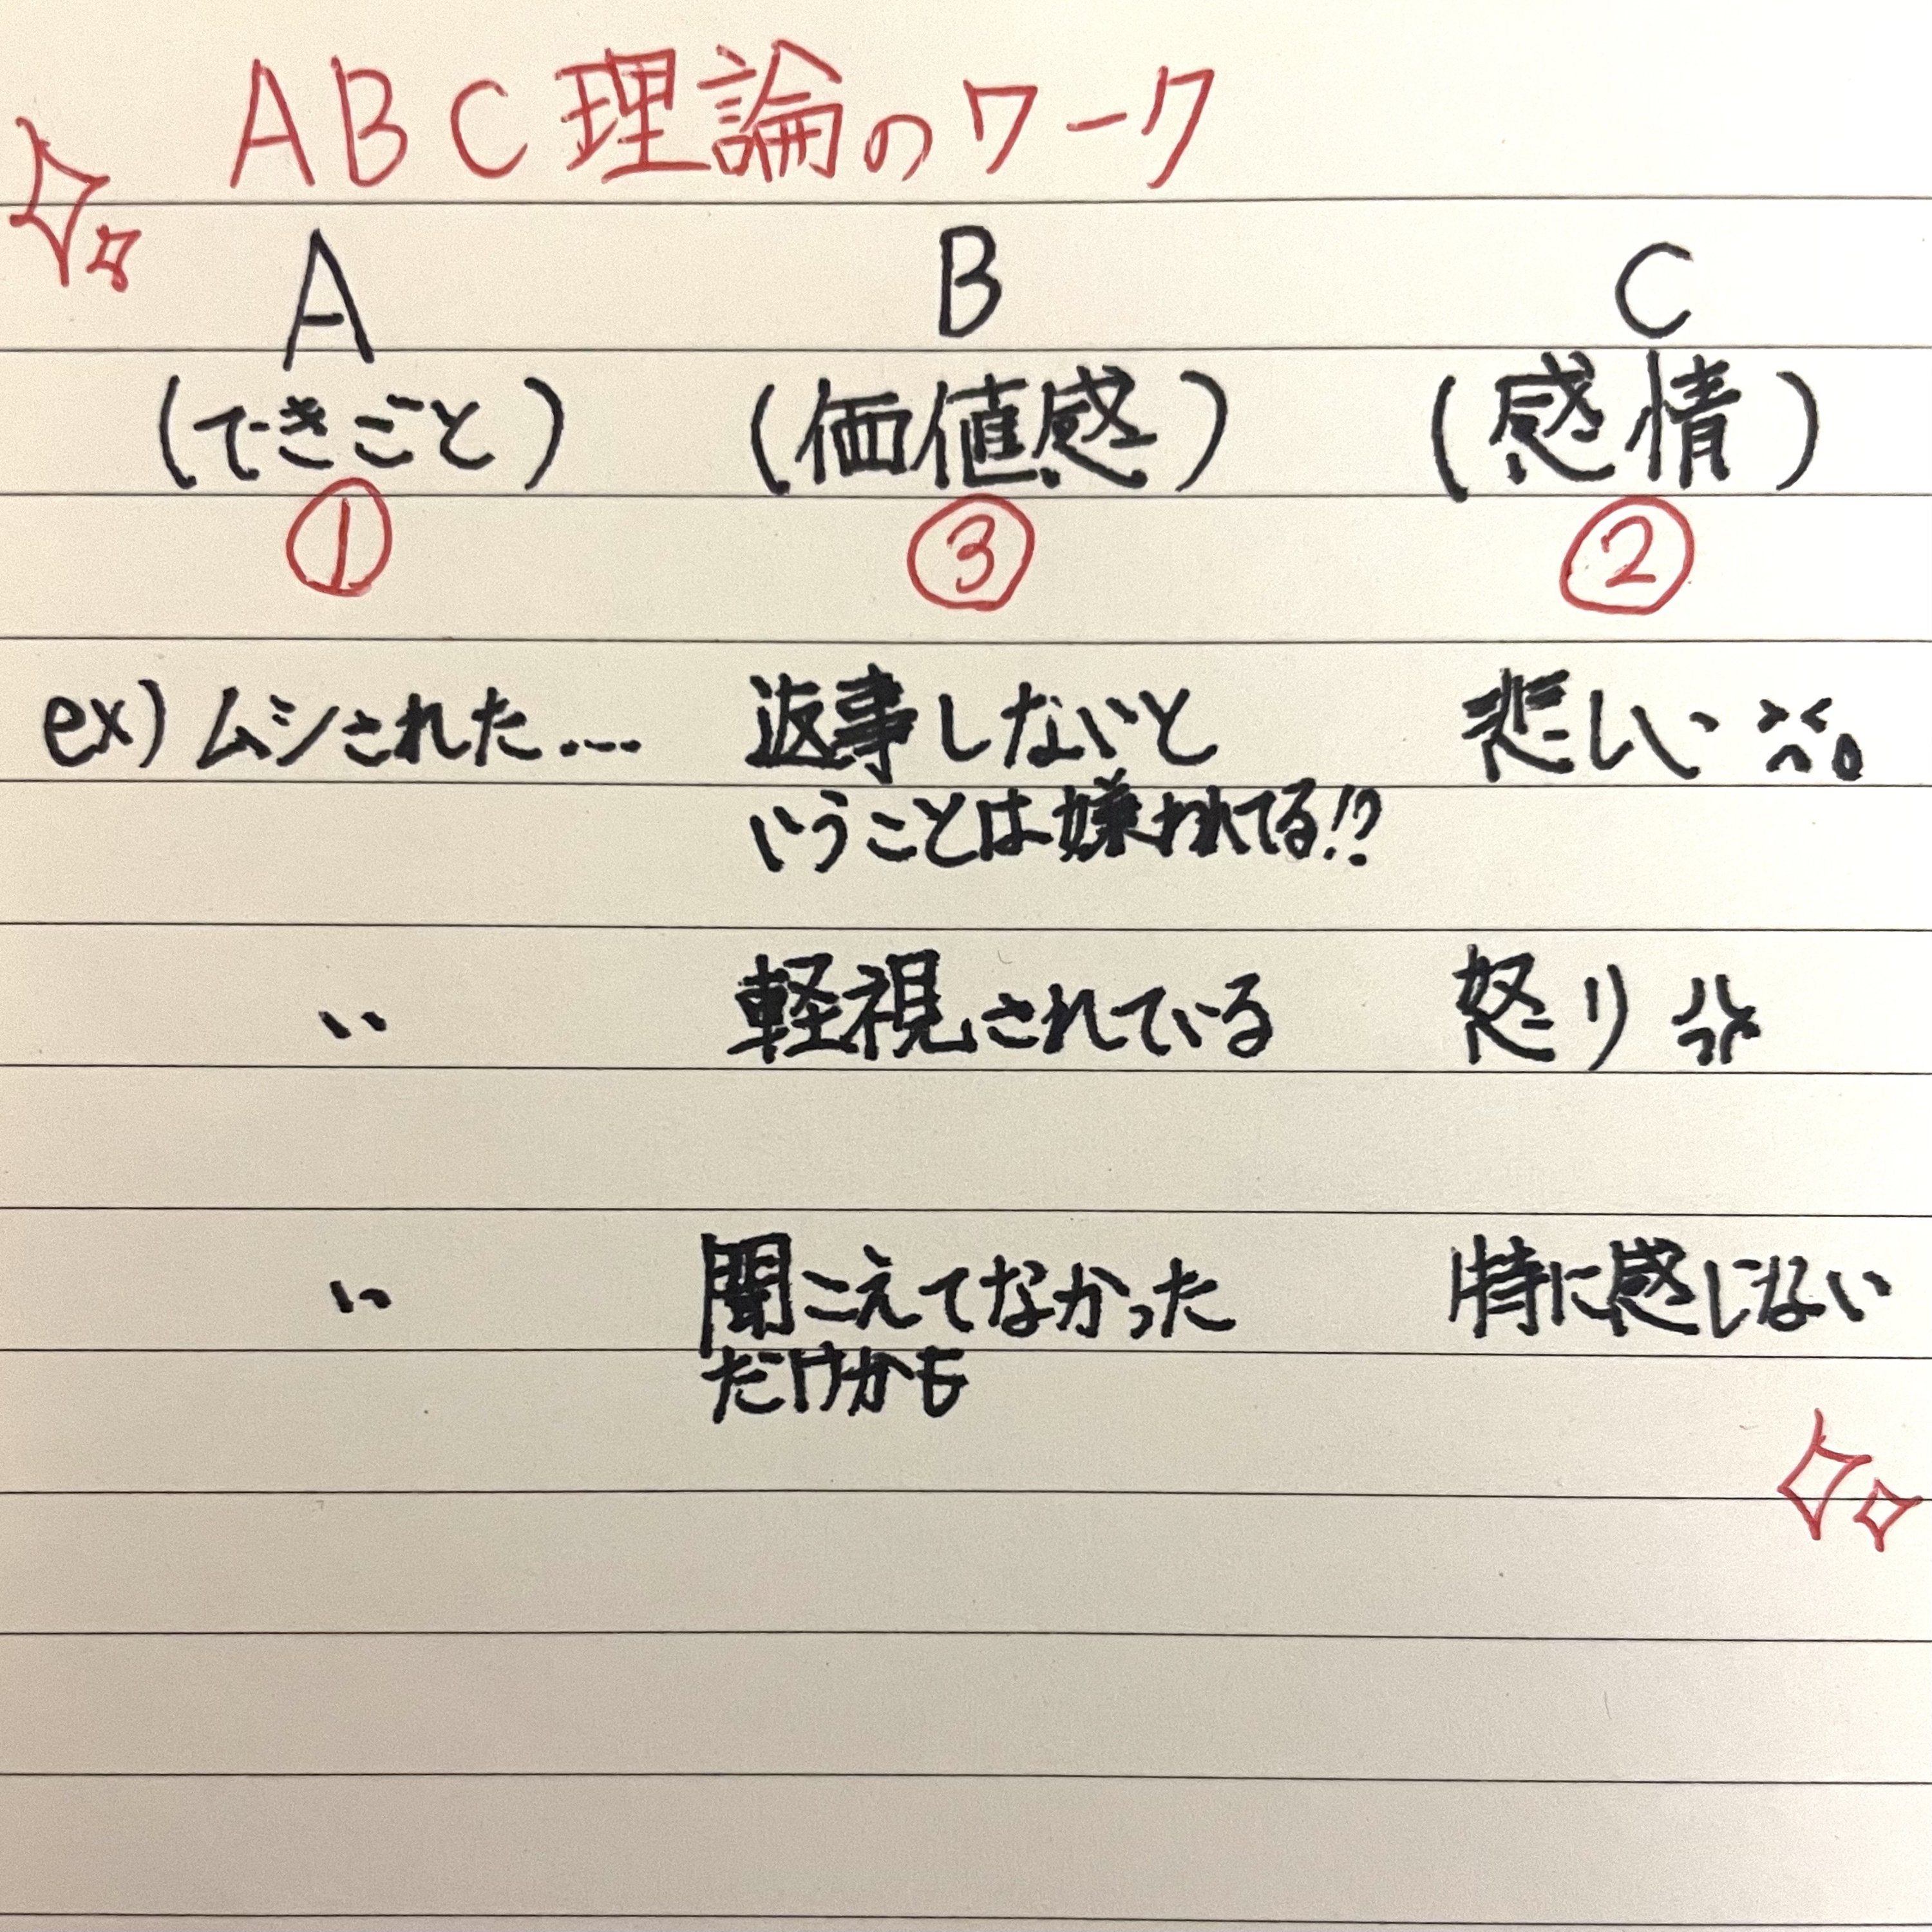 ABC理論のワーク
A B C
(できごと) (価値感) (感情)
① ③ ②
ex) ムシされた.... 返事しないと 悲しい
いうことは嫌われてる!?
〃 軽視されている 怒り
〃 聞こえてなかった 特に感じない
だけかも